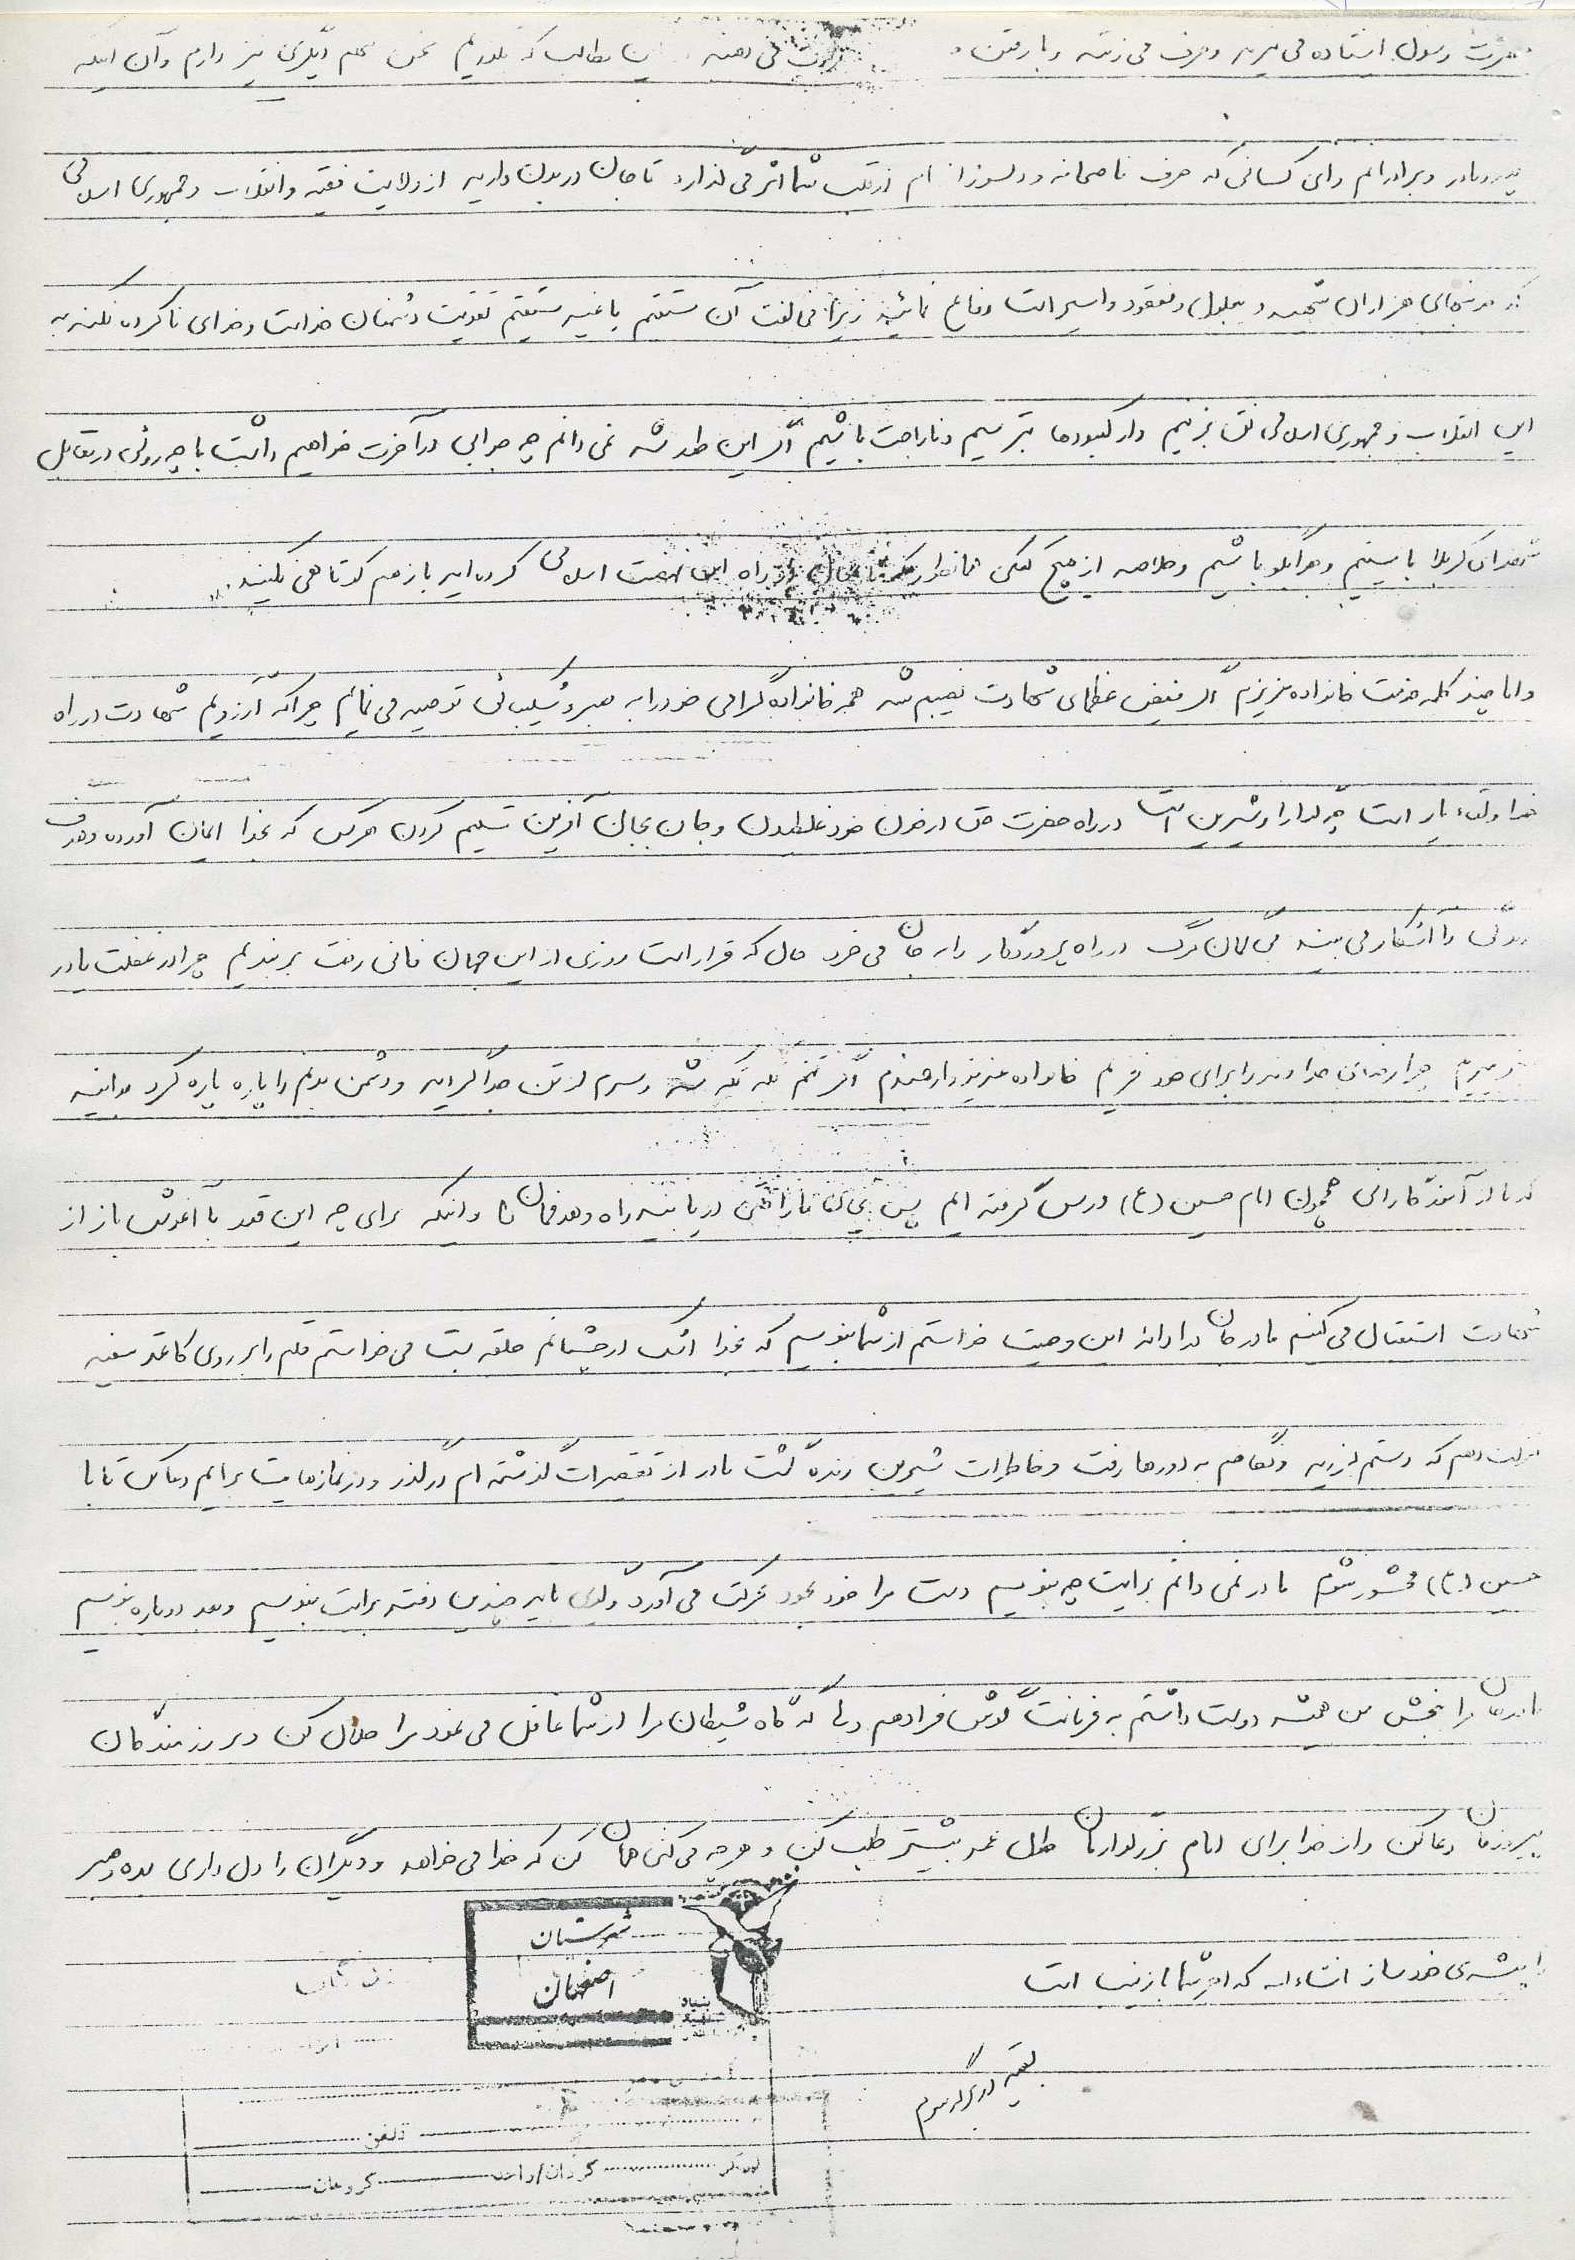 حضرت رسول ایستاده می میرید و حرف می زنند و با رفتن می دهند این مطالب که گفتم سخن مهم دیگری نیز دارم و آن اینکه
پدر و مادر و برادرانم و ای کسانی که حرف ناصحانه و دلسوزانه ام در قلب شما اثر می گذارد تا جان در بدن دارید از ولایت فقیه و انقلاب و جمهوری اسلامی
که خونبهای هزاران شهید و معلول و مفقود و اسیر است دفاع نمائید زیرا مخالفت آن مستقیم یا غیر مستقیم تقویت دشمنان خداست و خدای ناکرده نکند به
این انقلاب و جمهوری اسلامی نق بزنیم و از کمبودها بترسیم و ناراحت باشیم اگر این طور شد نمی دانم چه جوابی در آخرت خواهیم داشت با چه روئی در مقابل
شهدای کربلا بایستیم و جوابگو باشیم و خلاصه از هیچ کمکی همانطوریکه تا بحال در راه این نهضت اسلامی کرده اید باز هم کوتاهی نکنید.
و اما چند کلمه خدمت خانواده عزیزم اگر فیض عظمای شهادت نصیبم شد همه خانواده گرامی خود را به صبر و شکیبائی توصیه می نمایم چرا که آرزویم شهادت در راه
خدا و لقاء یار است چه گوارا و شیرین است در راه حضرت حق در خون خود غلطیدن و جان بجان آفرین تسلیم کردن هرکس که بخدا ایمان آورده و هدف
زندگی را آشکار می بیند بی گمان مرگ در راه پروردگار را به جان می خرد حال که قرار است روزی از این جهان فانی رخت بربندیم چرا در غفلت بادر
بمیریم چرا رضای خداوند را برای خود نخریم خانواده عزیز و ارجمندم اگر تنم تکه تکه شد و سرم از تن جدا گردید و دشمن بدنم را پاره پاره کرد بدانید
که ما از آموزگارانی همچون امام حسین (ع) درس گرفته ایم پس بجای ناراحتی دریابید راه و هدفمان را و اینکه برای چه این قدر با آغوش باز از
شهادت استقبال می کنیم مادر جان در ادامه این وصیت خواستم از شما بنویسم که بخدا اشک در چشمانم حلقه بست می خواستم قلم را بر روی کاغذ سفید
حرکت دهم که دستم لرزید و نگاهم به دورها رفت و خاطرات شیرین زنده گشت مادر از تقصیرات گذشته ام درگذر و در نمازهایت برایم دعا کن تا با
حسین (ع) محشور شوم مادر نمی دانم برایت چه بنویسم دست مرا خود بخود بحرکت می آورد گوئی باید چندین دفتر برایت بنویسم و بعد دوباره بنویسم
مادرجان مرا ببخش من همیشه دوست داشتم به فرمانت گوش فرا دهم ولی گه گاه شیطان مرا از شما غافل می نمود مرا حلال کن و بر رزمندگان
پیروزمان دعا کن و از خدا برای امام بزرگوارمان طول عمر بیشتر طلب کن و هر چه می کنی همان کن که خدا می خواهد و دیگران را دلداری بده و صبر
را پیشه ی خود ساز انشاءاله که اجر شما با زینب است
بقیه در برگ سوم
شهرستان
اصفهان
بنیاد
تلفن
لشکر گردان/واحد گروهان